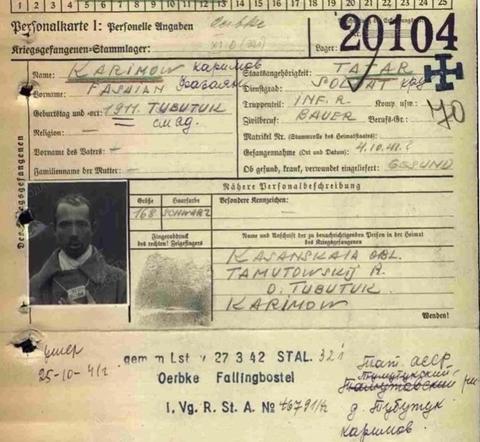 1 2 3 4 5 6 7 8 9 10 11 12 13 14 15 16 17 18 19 20 21 22 23 24 25
Personalkarte I: Personelle Angaben
Oerbke
Kriegsgefangenen-Stammlager:
XI D (321)
Lager:
20104
Des Kriegsgefangenen
Name: KARIMOW каримов
Vorname: FASAIAN
Geburtstag und -ort: 1911. TUBUTUK
Religion: —
Vorname des Vaters: —
Familienname der Mutter: —
Staatsangehörigkeit: TATAR
Dienstgrad: SOLDAT
Truppenteil: INF. R. Komp. usw.:
Zivilberuf: BAUER Berufs-Gr.:
170
Matrikel Nr. (Stammrolle des Heimatstaates):
Gefangennahme (Ort und Datum): 4.10.41.
Ob gesund, krank, verwundet eingeliefert: GESUND
Nähere Personalbeschreibung
Größe Haarfarbe Besondere Kennzeichen:
168 SCHWARZ
Fingerabdruck
des rechten! Zeigefingers
Name und Anschrift der zu benachrichtigenden Person in der Heimat
des Kriegsgefangenen
KASANSKAIA OBL.
TAMUTOWSKIJ R.
D. TUBUTUK
KARIMOW
Wenden!
умер
25-10-41г
gem. m Lst v 27 3 42 STAL. 321
Oerbke Fallingbostel
i. Vg. R. St. A. №
Тат АССР
д. Тубутук
каримов